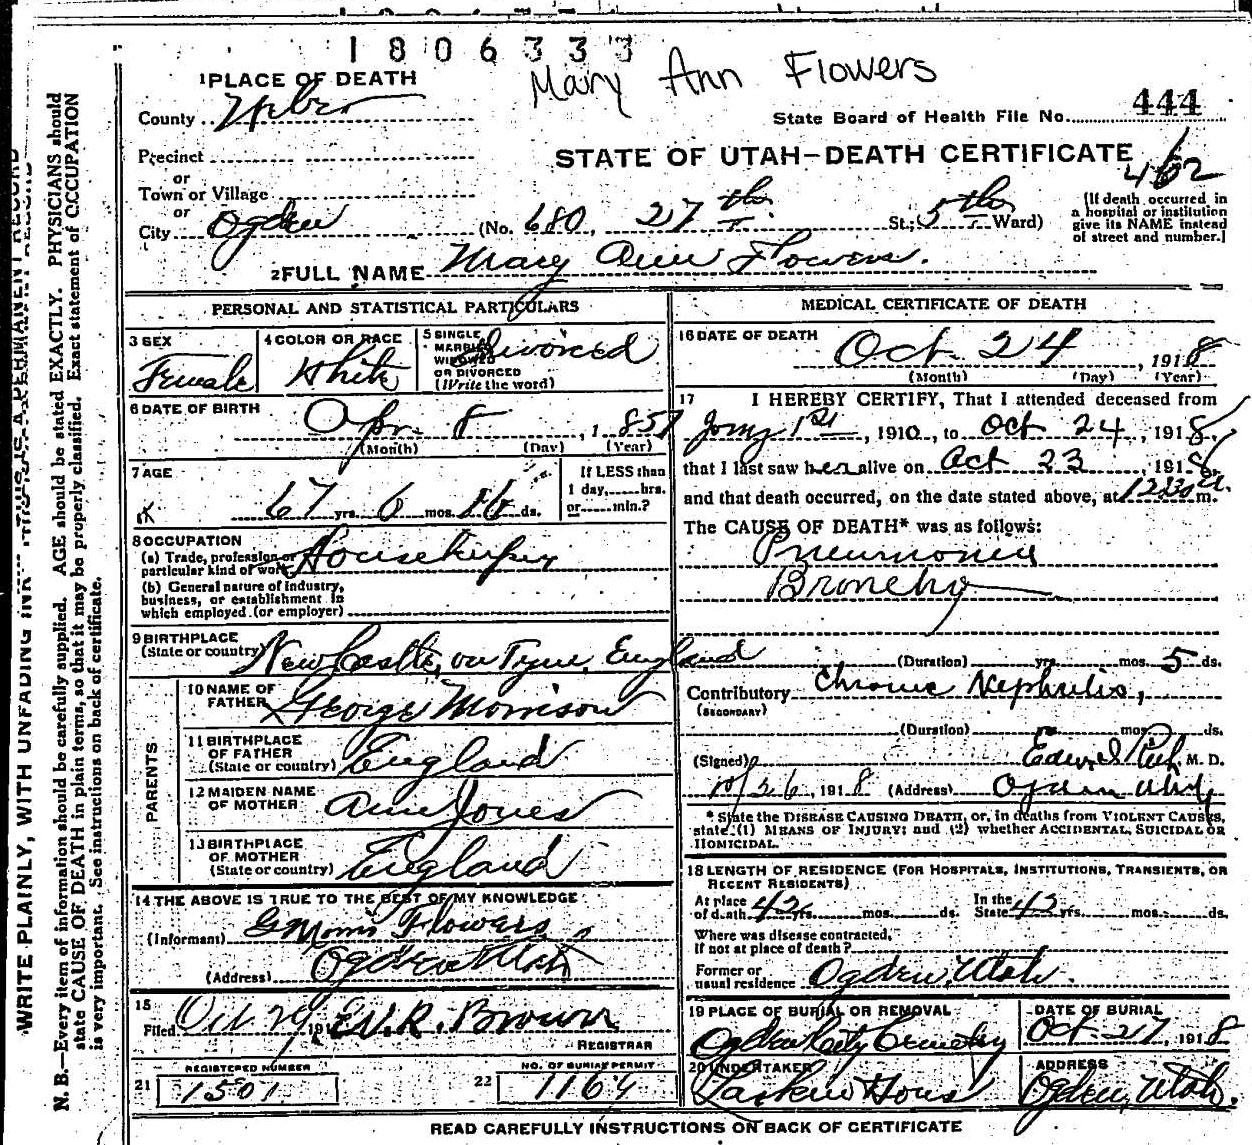 1806333
Mary Ann Flowers
1 PLACE OF DEATH
County Weber
State Board of Health File No. 444
Precinct
STATE OF UTAH–DEATH CERTIFICATE
462
or
Town or Village
or
City Ogden (No. 680, 27th St.; 5th Ward)
[If death occurred in
a hospital or institution
give its NAME instead
of street and number.]
2 FULL NAME Mary Ann Flowers.
PERSONAL AND STATISTICAL PARTICULARS
3 SEX
Female
4 COLOR OR RACE
White
5 SINGLE
MARRIED
WIDOWED
OR DIVORCED
(Write the word)
Divorced
6 DATE OF BIRTH
Apr. 8, 1851
(Month) (Day) (Year)
7 AGE
67 yrs. 6 mos. 16 ds.
If LESS than
1 day, hrs.
or min.?
8 OCCUPATION
(a) Trade, profession or
particular kind of work Housekeeper
(b) General nature of industry,
business, or establishment in
which employed (or employer)
9 BIRTHPLACE
(State or country) New Castle, on Tyne, England
PARENTS
10 NAME OF
FATHER George Morrison
11 BIRTHPLACE
OF FATHER
(State or country) England
12 MAIDEN NAME
OF MOTHER Ann Jones
13 BIRTHPLACE
OF MOTHER
(State or country) England
14 THE ABOVE IS TRUE TO THE BEST OF MY KNOWLEDGE
(Informant) G Morris Flowers
(Address) Ogden Utah
15
Filed Oct. 29, 191 E.V.R. Brown
REGISTRAR
REGISTERED NUMBER
21 1501
NO. OF BURIAL PERMIT
22 1164
MEDICAL CERTIFICATE OF DEATH
16 DATE OF DEATH
Oct. 24, 1918
(Month) (Day) (Year)
17 I HEREBY CERTIFY, That I attended deceased from
1st, 1910, to Oct 24, 1918,
that I last saw her alive on Oct 23, 1918,
and that death occurred, on the date stated above, at 1230 a.m.
The CAUSE OF DEATH* was as follows:
Pneumonia
Broncho
(Duration) yrs. mos. 5 ds.
Contributory Chronic Nephritis,
(SECONDARY)
(Duration) mos. ? ds.
(Signed) M. D.
10/26, 1918 (Address) Ogden Utah
* State the DISEASE CAUSING DEATH, or, in deaths from VIOLENT CAUSES,
state (1) MEANS OF INJURY; and (2) whether ACCIDENTAL, SUICIDAL OR
HOMICIDAL.
18 LENGTH OF RESIDENCE (FOR HOSPITALS, INSTITUTIONS, TRANSIENTS, OR
RECENT RESIDENTS)
At place
of death 42 yrs. mos. ds.
In the
State 42 yrs. mos. ds.
Where was disease contracted,
if not at place of death?
Former or
usual residence Ogden, Utah.
19 PLACE OF BURIAL OR REMOVAL
Ogden City Cemetery
DATE OF BURIAL
Oct. 27, 1918
20 UNDERTAKER
Larkin & Sons
ADDRESS
Ogden, Utah.
READ CAREFULLY INSTRUCTIONS ON BACK OF CERTIFICATE
WRITE PLAINLY, WITH UNFADING INK THIS IS A PERMANENT RECORD
N. B.—Every item of information should be carefully supplied. AGE should be stated EXACTLY. PHYSICIANS should
state CAUSE OF DEATH in plain terms, so that it may be properly classified. Exact statement of OCCUPATION
is very important. See instructions on back of certificate.